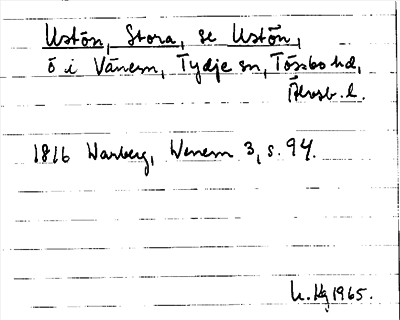 Ustön, Stora, se Ustön,
ö i Vänern, Tydje sn, Tössbo hd,
Älvsb. l.
1816 Warberg, Wenern 3, s. 94.
1965.